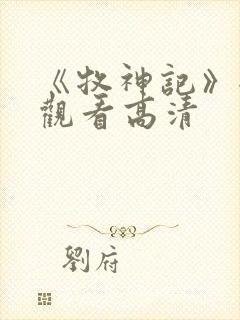 《牧神記》
觀看高清
劉府